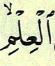 ٱلْعِلْمِۙ